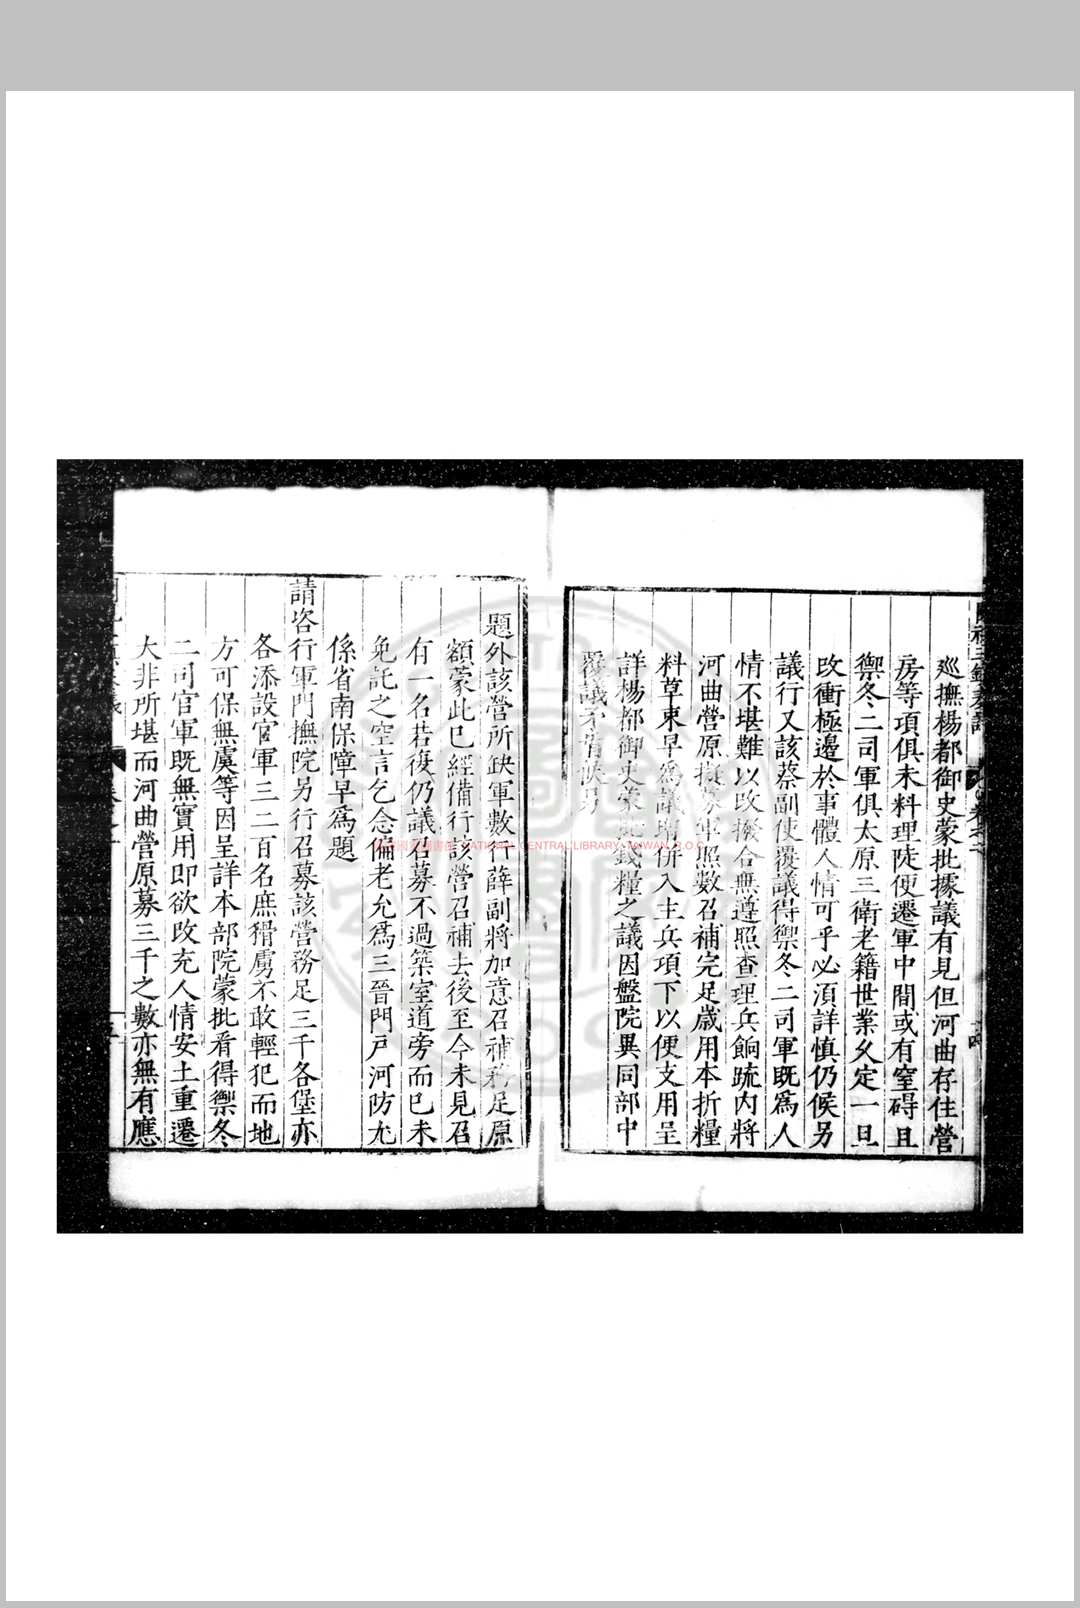 巡撫楊都御史蒙批據議有見但河曲存住營
房等項俱未料理陡便遷軍中間或有窒碍且
禦冬二司軍俱太原三衛老籍世業久定一旦
改衝極邊於事體人情可乎必湏詳慎仍候另
議行又該蔡副使覆議得禦冬二司軍既爲人
情不堪難以改撥合無遵照查理兵餉疏内將
河曲營原擬募軍照數召補完足歲用本折糧
料草束早爲議增併入主兵項下以便支用呈
詳楊都御史蒙批錢糧之議因盤院異同部中
覆議不省候另
題外該營所缺軍數行薛副將加意召補務足原
額蒙此已經備行該營召補去後至今未見召
有一名若復仍議召募不過築室道旁而已未
免託之空言乞念偏老允爲三晉門戸河防尤
係省南保障早爲題
請咨行軍門撫院另行召募該營務足三千各堡亦
各添設官軍三二百名庶猾虜不敢輕犯而地
方可保無虞等因呈詳本部院蒙批看得禦冬
二司官軍既無實用即欲改充人情安土重遷
大非所堪而河曲營原募三千之數亦無有應